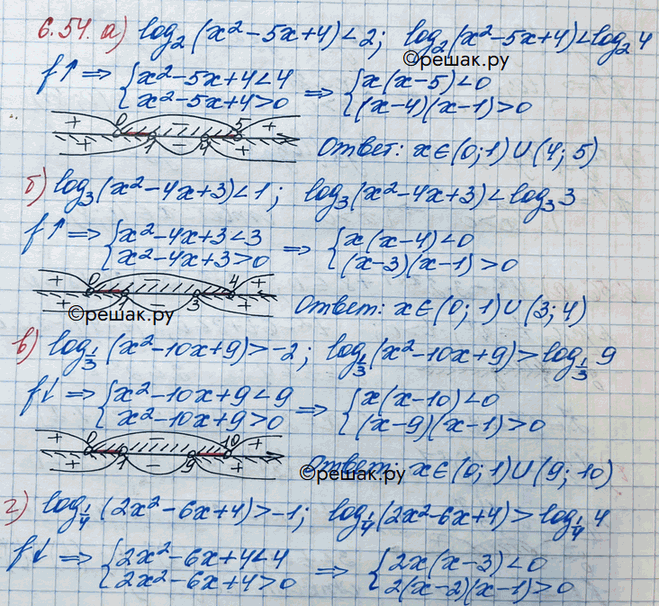 6.54. а) log₂(x²-5x+4)<2; log₂(x²-5x+4)<log₂4
©решак.ру
f↑ ⇒ {x²-5x+4<4 ⇒ {x(x-5)<0
{x²-5x+4>0 {(x-4)(x-1)>0
+ 0 - 5 +
+ 1 - 4 + Ответ: x∈(0;1)∪(4;5)
б) log₃(x²-4x+3)<1; log₃(x²-4x+3)<log₃3
f↑ ⇒ {x²-4x+3<3 ⇒ {x(x-4)<0
{x²-4x+3>0 {(x-3)(x-1)>0
+ 0 - 4 +
+ - 3 + Ответ: x∈(0;1)∪(3;4)
©решак.ру
в) log_{1/3}(x²-10x+9)>-2; log_{1/3}(x²-10x+9)>log_{1/3}9
f↓ ⇒ {x²-10x+9<9 ⇒ {x(x-10)<0
{x²-10x+9>0 {(x-9)(x-1)>0
+ 0 - 10 +
+ 1 - 9 + Ответ: x∈(0;1)∪(9;10)
©решак.ру
г) log_{1/4}(2x²-6x+4)>-1; log_{1/4}(2x²-6x+4)>log_{1/4}4
f↓ ⇒ {2x²-6x+4<4 ⇒ {2x(x-3)<0
{2x²-6x+4>0 {2(x-2)(x-1)>0